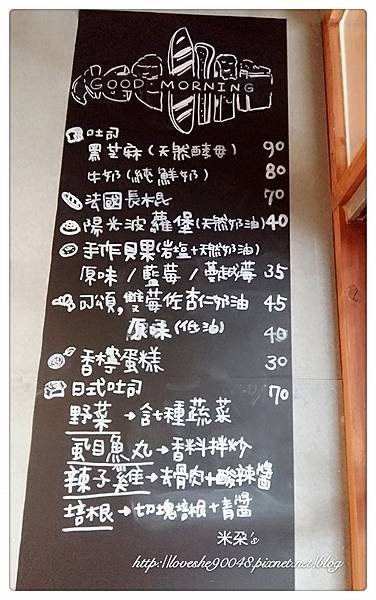 GOOD MORNING
吐司
黑芝麻(天然酵母) 90
牛奶(純鮮奶) 80
法國長棍 70
陽光波蘿堡(天然奶油) 40
手作貝果(岩塩+天然奶油)
原味/藍莓/蔓越莓 35
可頌,雙莓佐杏仁奶油 45
原味(低油) 40
香檸蛋糕 30
日式吐司 70
野菜→計種蔬菜
虱目魚丸→香料拌炒
辣子雞→去骨肉+酸辣醬
培根→切塊培根+青醬
米朶's
http://loveshe90048.pixnet.net/blog